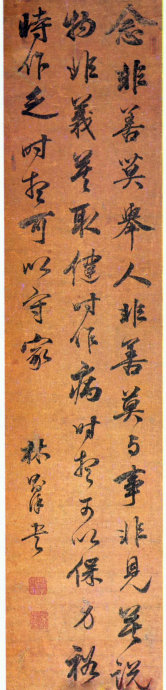 念非善莫舉人非善莫与事非見莫説
物非義莫取健时作病时想可以保身裕
時作乏时想可以守家
林书